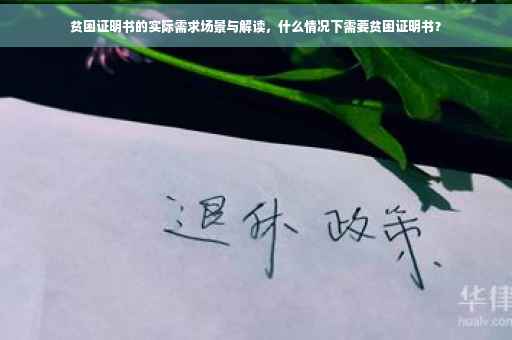 贫困证明书的实际需求场景与解读，什么情况下需要贫困证明书？
退休 政策
华律
hualv.com